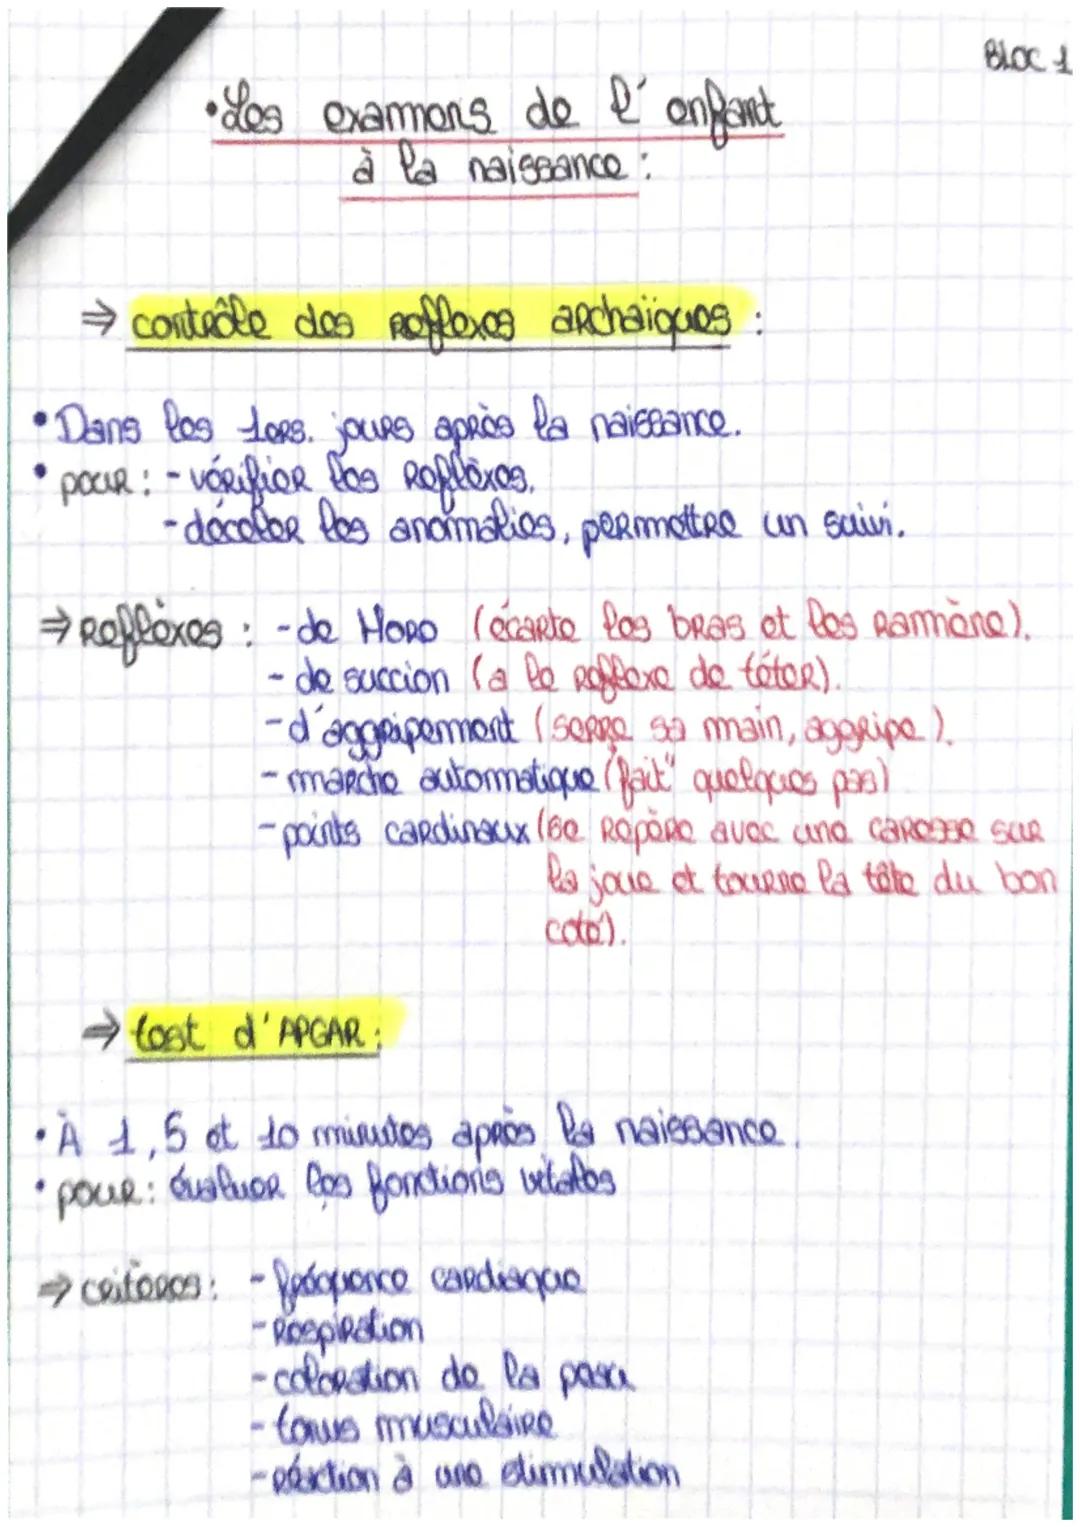 Bloc 1
• Les examens de l'enfant
à la naissance :
⇒ contrôle des reflexes archaïques :
• Dans les 1ers. jours après la naissance.
• pour : - vérifier les Refléxes.
- déceler les anomalies, permettre un suivi.
⇒ Refléxes : - de Moro (écarte les bras et les ramène).
- de succion (a le reflexe de téter).
- d'aggripement (serre sa main, aggripe).
- marche automatique ("fait" quelques pas)
- points cardinaux (se repère avec une caresse sur
la joue et tourne la tête du bon
coté).
⇒ test d'APGAR :
• À 1, 5 et 10 minutes après la naissance.
• pour : évaluer les fonctions vitales
⇒ critères : - fréquence cardiaque
- Respiration
- coloration de la peau
- tonus musculaire
- réaction à une stimulation